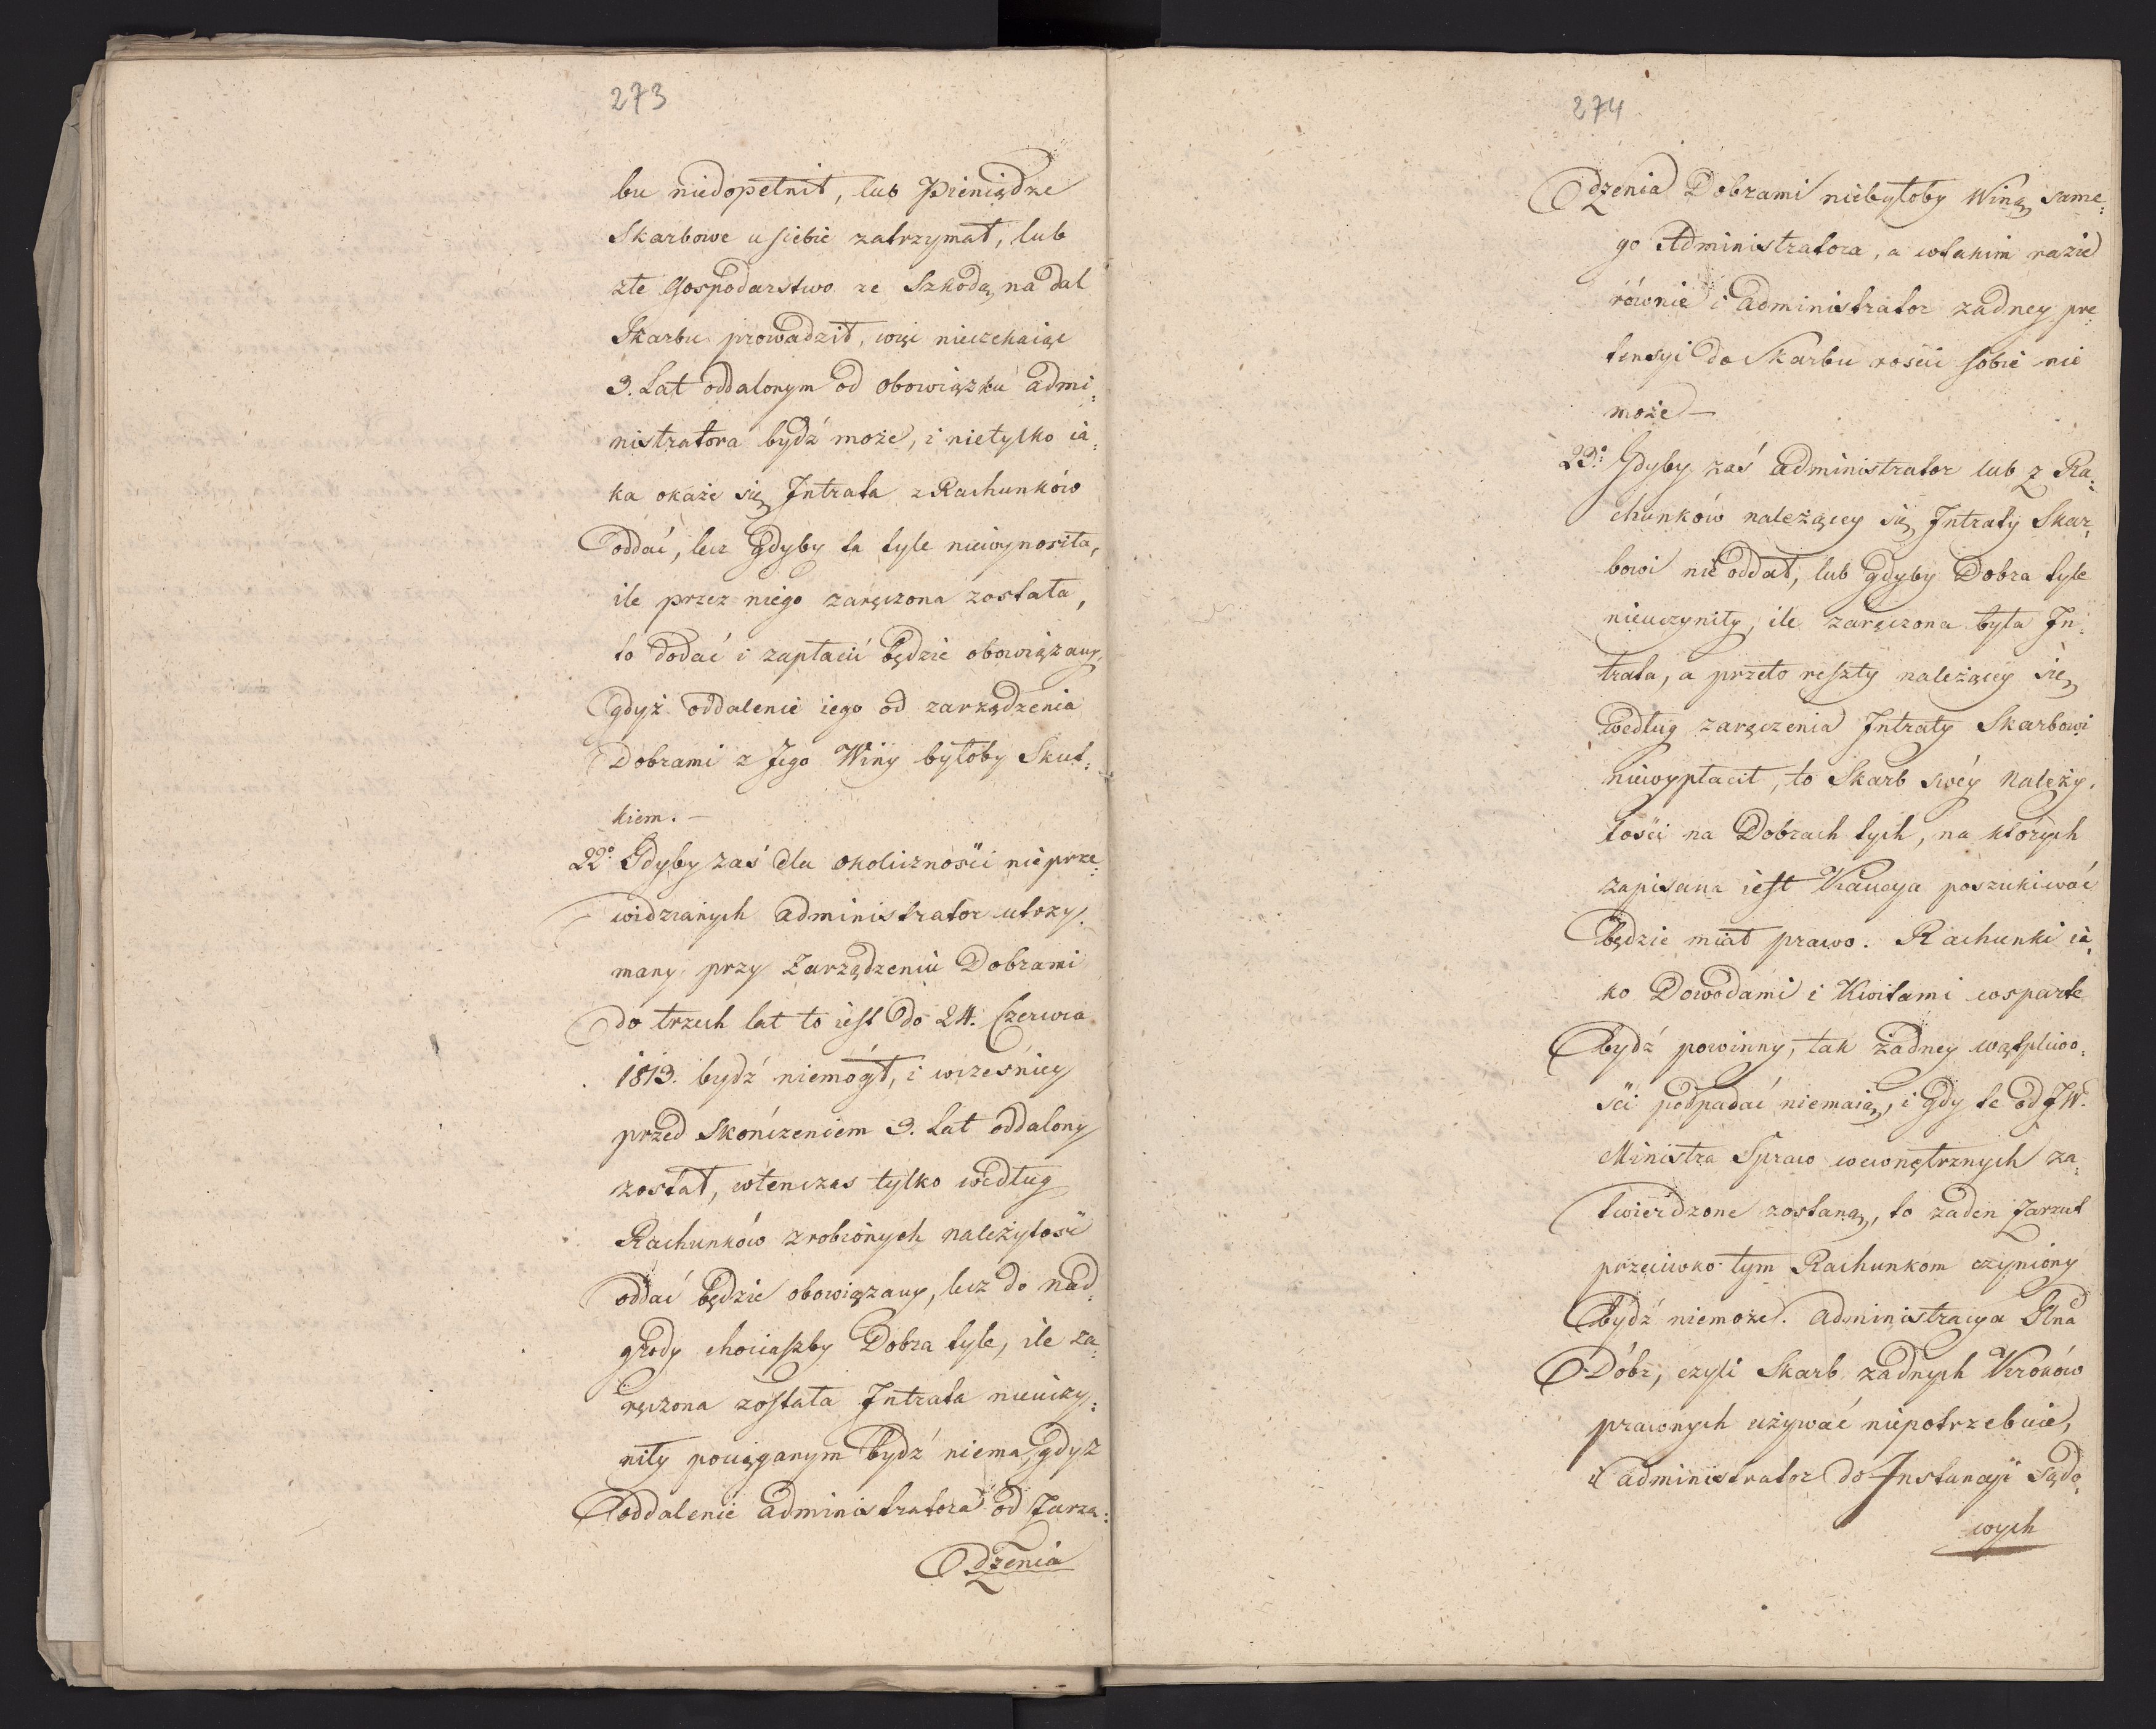 273
bu niedopełnił, lub Pieniądze
Skarbowe u siebie zatrzymał, lub
złe Gospodarstwo ze Szkodą na dal
Skarbu prowadził, więc nieczekaiąc
3. Lat oddalonym od obowiązku admi:
nistratora bydź może, i nietylko ia:
ka okaże się Intrata z Rachunków
oddać, lecz gdyby ta tyle niewynosiła,
ile przez niego zaręczona została,
to dodać i zapłacić będzie obowiązany,
gdyż oddalenie iego od zarządzenia
Dobrami z Jego Winy byłoby Skut:
kiem. —
22o: Gdyby zaś dla okoliczności nieprze:
widzianych administrator utrzy:
many przy Zarządzeniu Dobrami
do trzech lat to iest do 24. Czerwca
1813. bydź niemógł, i wcześniey
przed skończeniem 3. Lat oddalony
został, wtenczas tylko według
Rachunków zrobionych należytość
oddać będzie obowiązany, lecz do nad:
grody chociaszby Dobra tyle, ile za:
ręczona została Intrata nieuczy:
niły pociąganym bydź niema, gdyż
oddalenie administratora od Zarzą:
dzenia
274
dzenia Dobrami niebyłoby Winą same:
go Administratora, a wtakim razie
równie i administrator żadney pre:
tensyi do Skarbu rościć sobie nie
może —
23o: Gdyby zaś administrator lub z Ra:
chunków należącey się Intraty Skar:
bowi nie oddał, lub gdyby Dobra tyle
nieuczyniły, ile zaręczona była In:
trata, a przeto reszty należącey się
według zaręczenia Intraty Skarbowi
niewypłacił, to Skarb swéy Należy:
tości na Dobrach tych, na których
zapisana iest Kaucya poszukiwać
będzie miał prawo. Rachunki ia:
ko Dowodami i Kwitami wsparte
bydź powinny, tak żadney wątpliwo:
ści podpadać niemaią, i gdy te od JW.
Ministra Spraw wewnętrznych za:
twierdzone zostaną, to żaden zarzut
przeciwko tym Rachunkom czyniony
bydź niemoże. Administracya Glna
Dóbr, czyli Skarb żadnych Kroków
prawnych używać niepotrzebuie,
i administrator do Instancyi Sądo:
wych